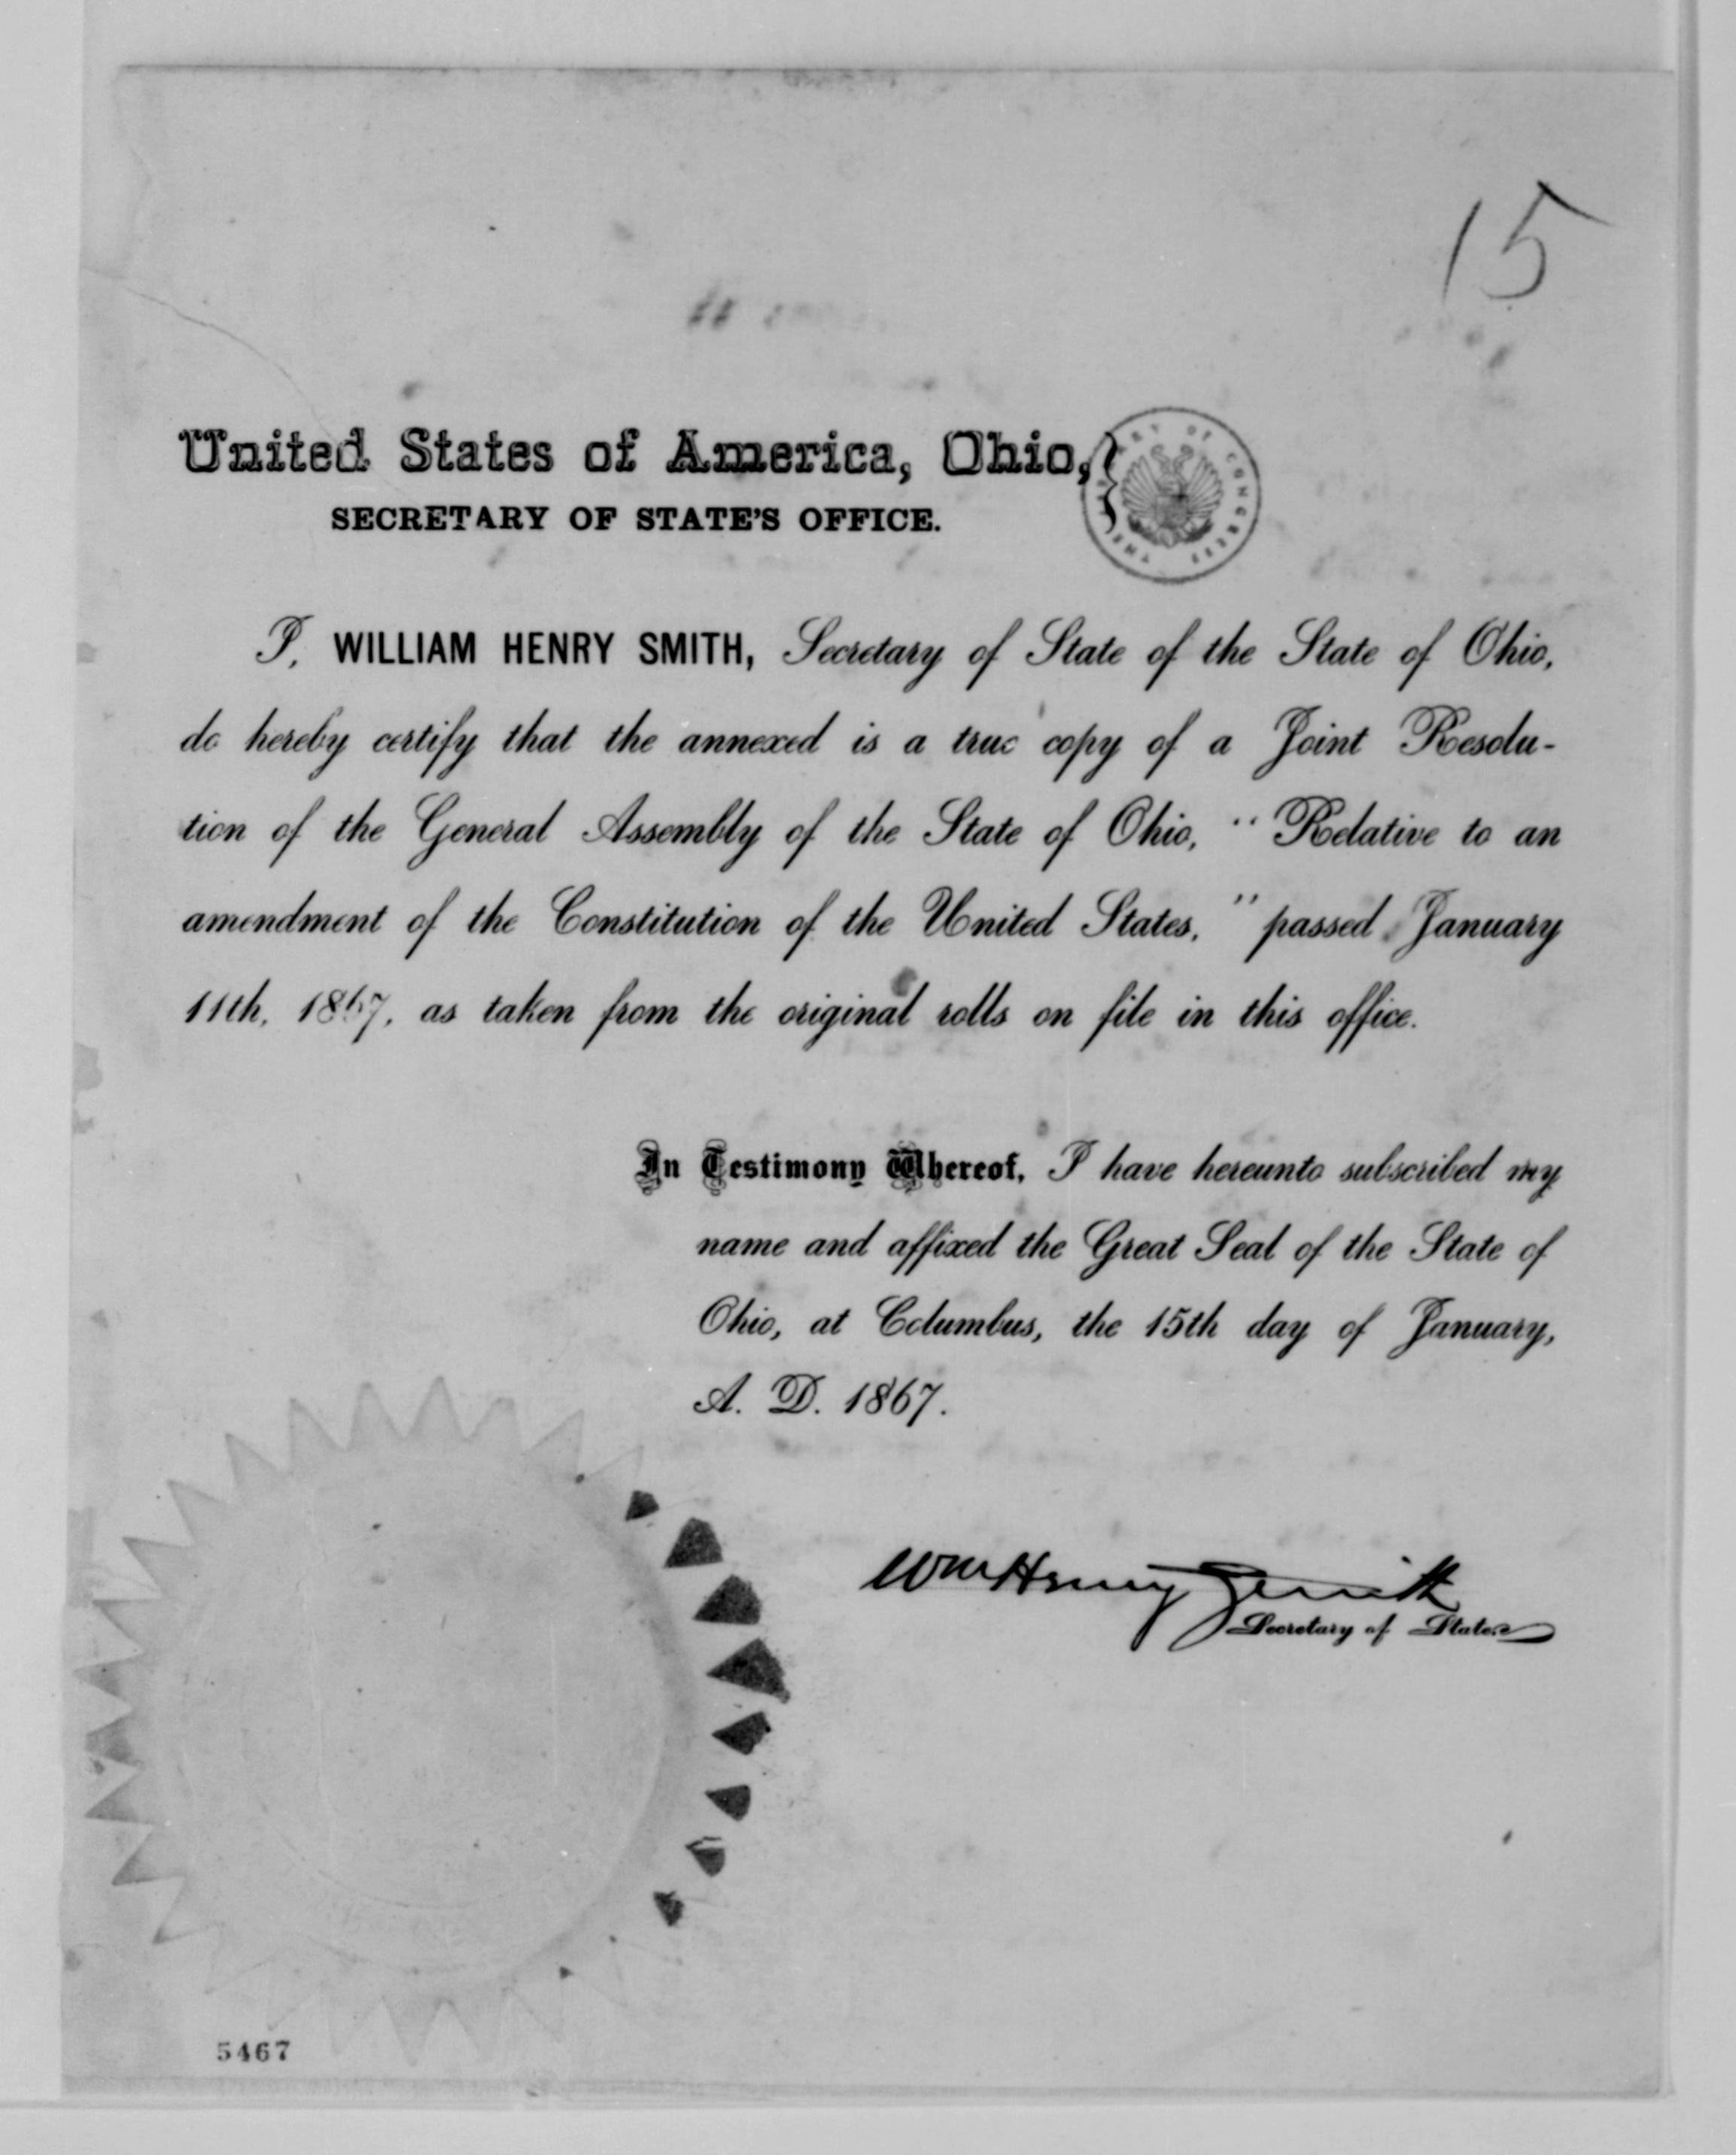 15
United States of America, Ohio,
SECRETARY OF STATE'S OFFICE.
I, WILLIAM HENRY SMITH, Secretary of State of the State of Ohio,
do hereby certify that the annexed is a true copy of a Joint Resolu-
tion of the General Assembly of the State of Ohio, "Relative to an
amendment of the Constitution of the United States," passed January
11th, 1867, as taken from the original rolls on file in this office.
In Testimony Whereof, I have hereunto subscribed my
name and affixed the Great Seal of the State of
Ohio, at Columbus, the 15th day of January,
A. D. 1867.
Wm Henry Smith
Secretary of State.
5467